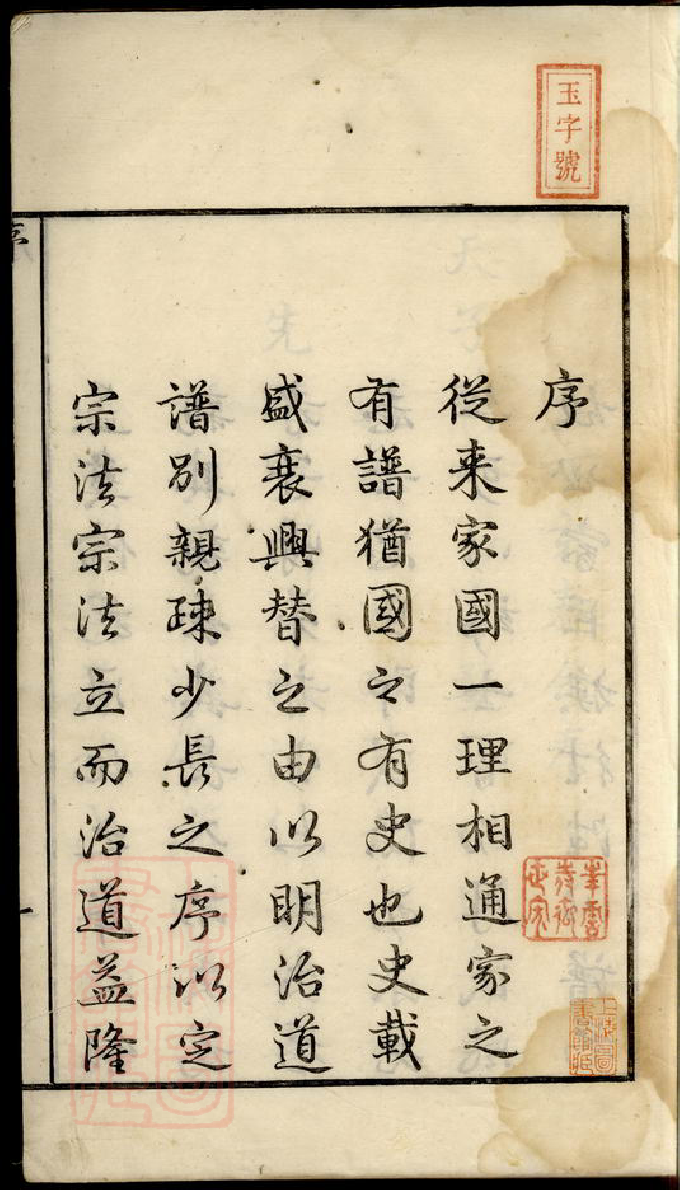 玉字號
序
從来家國一理相通家之
有譜猶國之有史也史載
盛衰興替之由以明治道
譜別親疎少長之序以定
宗法宗法立而治道益隆
上海圖書館藏
序